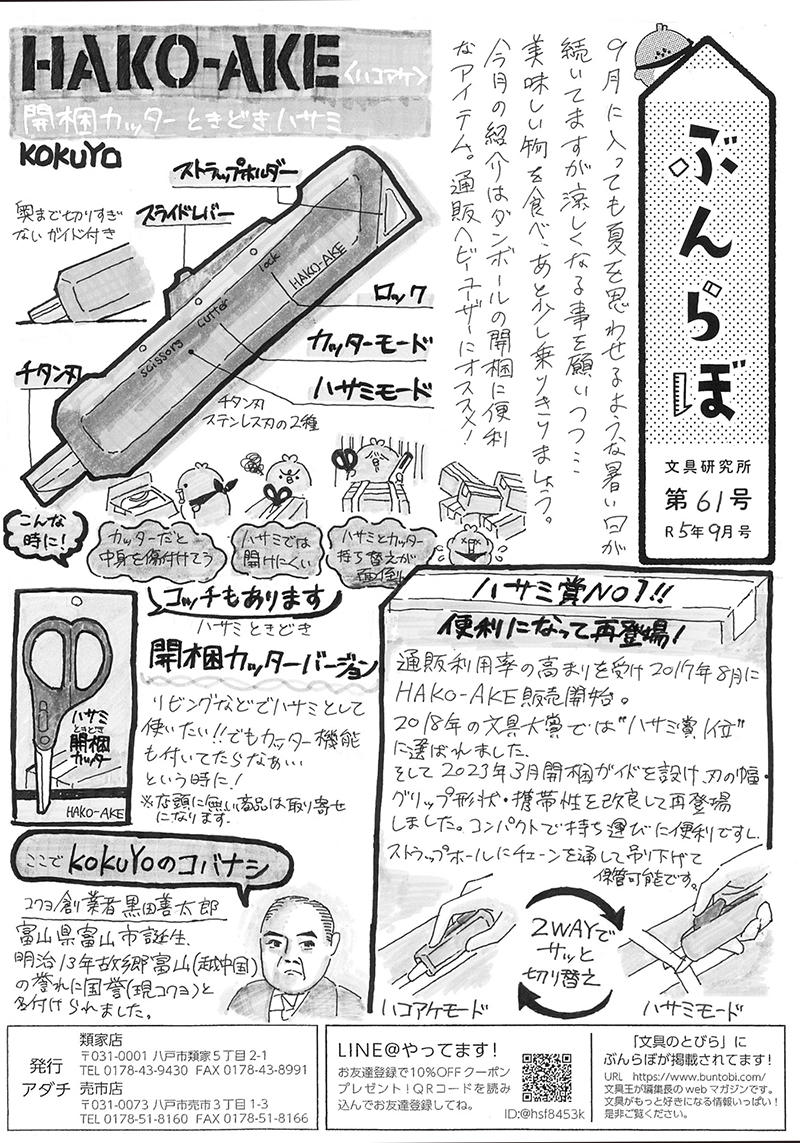 ぶんらぼ
文具研究所
第61号
R5年9月号
9月に入っても夏を思わせるような暑い日が
続いてますが涼しくなる事を願いつつ…
美味しい物を食べ、あと少し乗りきりましょう。
今月の紹介はダンボールの開梱に便利
なアイテム。通販ヘビーユーザーにオススメ!
HAKO-AKE〈ハコアケ〉
開梱カッターときどきハサミ
KOKUYO
ストラップホルダー
スライドレバー
奥まで切りすぎ
ないガイド付き
lock
HAKO-AKE
cutter
scissors
ロック
カッターモード
ハサミモード
チタン刃
チタン刃
ステンレス刃の2種
こんな
時に!
カッターだと
中身を傷付けてう
ハサミでは
開けにくい
ハサミとカッター
持ち替えが
面倒
コッチもあります
ハサミときどき
開梱カッターバージョン
ハサミ
ときどき
開梱
カッター
HAKO-AKE
リビングなどでハサミとして
使いたい!!でもカッター機能
も付いてたらなぁぃぃ
という時に!
※店頭に無い商品は取り寄せ
になります.
ハサミ賞NO1!!
便利になって再登場!
通販利用率の高まりを受け2017年8月に
HAKO-AKE販売開始。
2018年の文具大賞では"ハサミ賞1位"
に選ばれました.
そして2023年3月開梱ガイドを設け、刃の幅・
グリップ形状・携帯性を改良して再登場
しました。コンパクトで持ち運びに便利ですし、
ストラップホールにチェーンを通して吊り下げて
保管可能です。
2WAYで
サッと
切り替え
ハコアケモード
ハサミモード
ここで KOKUYOのコバナシ
コクヨ創業者黒田善太郎
富山県富山市誕生.
明治13年故郷富山(越中国)
の誉れに国誉(現コクヨ)と
名付けられました。
発行
アダチ
類家店
〒031-0001 八戸市類家5丁目2-1
TEL 0178-43-9430 FAX 0178-43-8991
売市店
〒031-0073 八戸市売市3丁目1-3
TEL 0178-51-8160 FAX 0178-51-8166
LINE@やってます!
お友達登録で10%OFFクーポン
プレゼント!QRコードを読み
込んでお友達登録してね。
ID:@hsf8453k
「文具のとびら」に
ぶんらぼが掲載されてます!
URL https://www.buntobi.com/
文具王が編集長のwebマガジンです。
文具がもっと好きになる情報いっぱい!
是非ご覧ください。